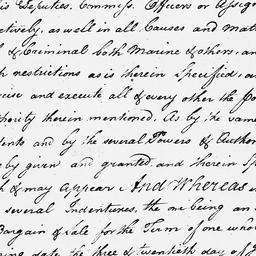 is Deputies, Commiss. Officers or Assign
ectively, as well in all Causes and mat
l & Criminal both Marine & others, an
h restrictions as is therein Specified, an
cise and execute all & every other the Po
thority therein mentioned. As by the same
tents and by the several Powers & Author
eby given and granted and therein Sp
h & may Appear And Whereas
several Indentures, the one being an
Bargain & Sale for the Term of one whol
ing date the three & twentieth day of J